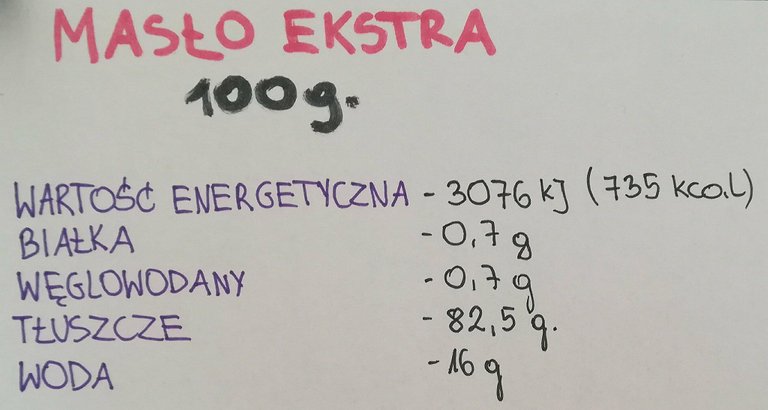 MASŁO EKSTRA
100g.
WARTOŚĆ ENERGETYCZNA - 3076 kJ (735 kcal)
BIAŁKA - 0,7 g
WĘGLOWODANY - 0,7 g
TŁUSZCZE - 82,5 g.
WODA - 16 g